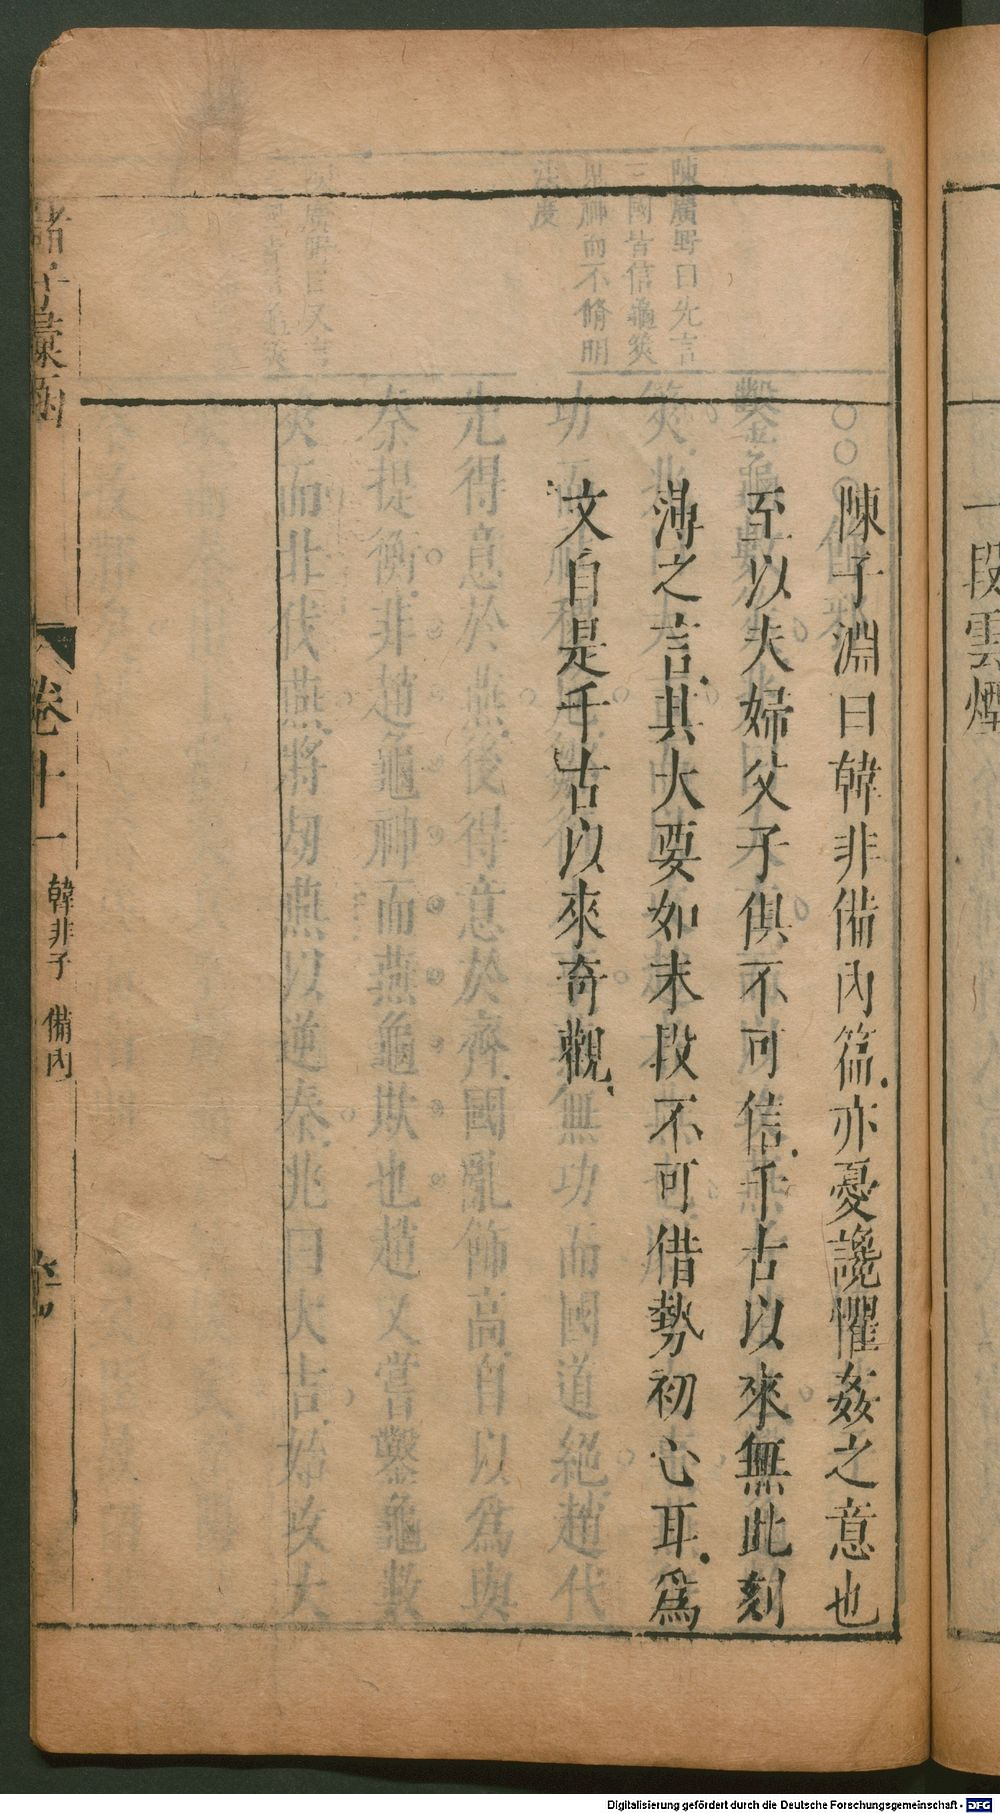 一段雲煙
陳子淵曰韓非備內篇亦憂讒懼姦之意也
至以夫婦父子俱不可信千古以來無此刻
薄之言其大要如末段不可借勢初心耳爲
文自是千古以來奇觀
諸子彙函
卷十一
韓非子 備內
Digitalisierung gefördert durch die Deutsche Forschungsgemeinschaft - DFG